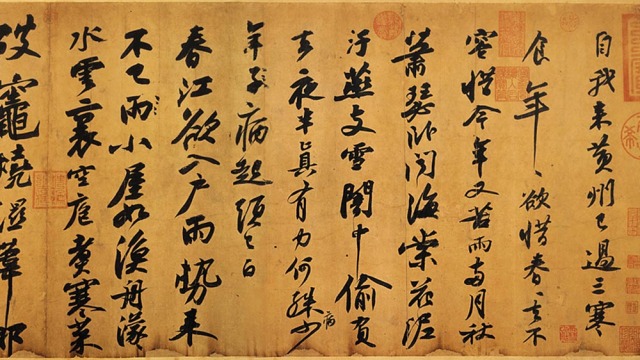 自我来黄州已過三寒
食年〻欲惜春〻去不
容惜今年又苦雨兩月秋
蕭瑟卧聞海棠花泥
汙燕支雪闇中偷負
去夜半真有力何殊少病
年子病起頭已白
春江欲入户雨勢来
不已雨小屋如漁舟濛〻
水雲裏空庖煮寒菜
破竈燒濕葦那